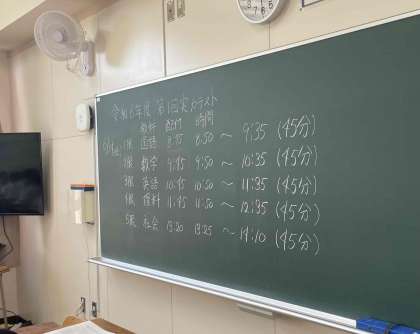 令和6年度 第1回実力テスト
教科 配付 時間
1限 国語 8:45 8:50 ～ 9:35 (45分)
2限 数学 9:45 9:50 ～ 10:35 (45分)
3限 英語 10:45 10:50 ～ 11:35 (45分)
4限 理科 11:45 11:50 ～ 12:35 (45分)
5限 社会 13:20 13:25 ～ 14:10 (45分)